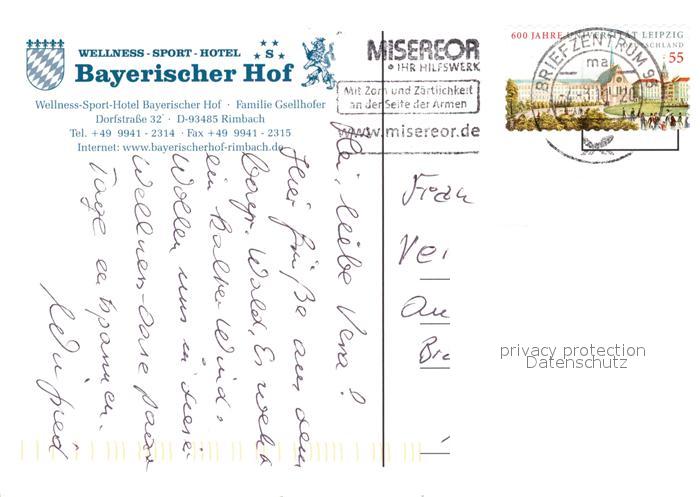 WELLNESS - SPORT - HOTEL
S
Bayerischer Hof
Wellness-Sport-Hotel Bayerischer Hof · Familie Gsellhofer
Dorfstraße 32 · D-93485 Rimbach
Tel. +49 9941 - 2314 · Fax +49 9941 - 2315
Internet: www.bayerischerhof-rimbach.de
MISEREOR
• IHR HILFSWERK
Mit Zorn und Zärtlichkeit
an der Seite der Armen
www.misereor.de
600 JAHRE UNIVERSITÄT LEIPZIG
DEUTSCHLAND
55
BRIEFZENTRUM 93
ma
liebe Vera!
Hier Grüße aus dem
bayr. Wald. Es weht
ein kalter Wind.
Wollen uns in dieser
Wellness-Oase paar
Tage entspannen.
Winfried
Frau
Ver
An
Br
privacy protection
Datenschutz